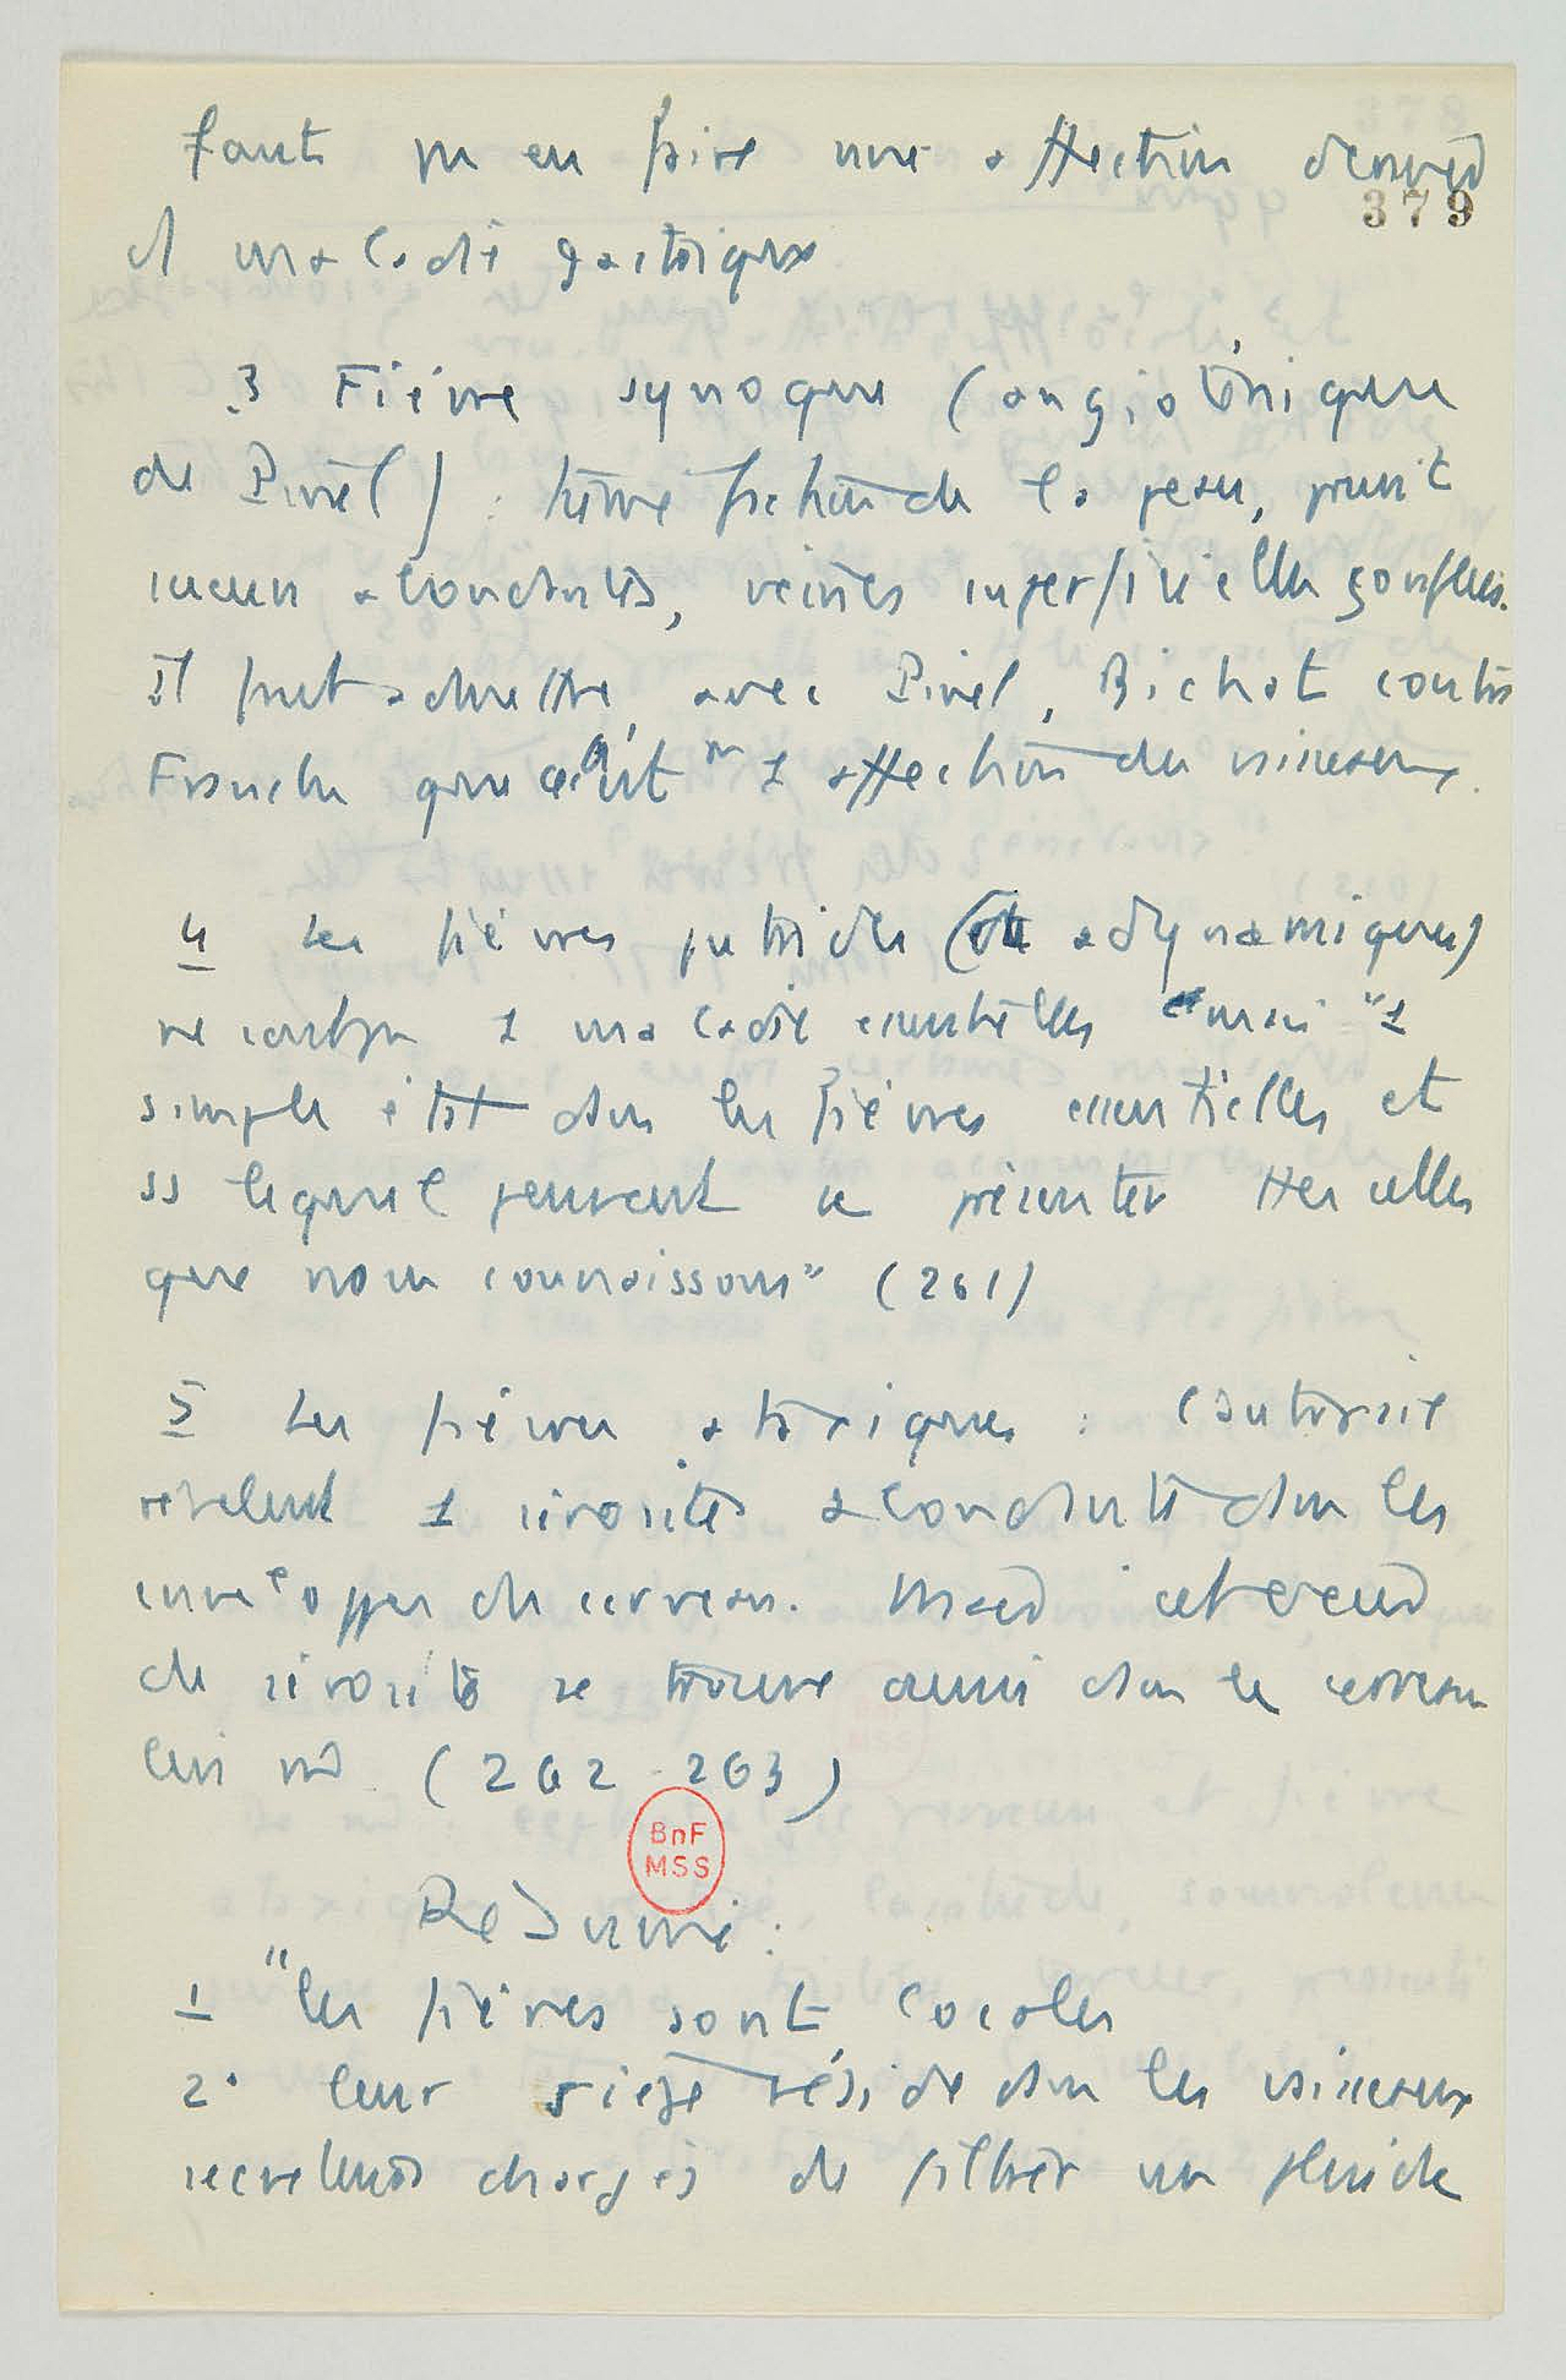 faut en faire une affection
379
maladie gastrique
3 Fièvre synoque (angioténique
de Pinel) : de la peau,
sueur abondantes, veines superficielles gonflées.
Il faut admettre, avec Pinel, Bichat contre
que c'est 1 affection des vaisseaux.
4 Les fièvres putrides ( adynamiques)
ne 1 maladie essentielles mais "1
simple état dans les fièvres essentielles et
ss lequel peuvent se présenter ttes celles
que nous connaissons" (261)
5 Les fièvres ataxiques : l'autopsie
révèlent 1 sérosité abondante dans les
enveloppes du cerveau. Mais
de sérosité se trouve aussi dans le cerveau
lui m̂ (262-263)
BnF
MSS
Résumé :
1 "les fièvres sont locales
2° leur siège réside dans les vaisseaux
chargés de filtrer un fluide